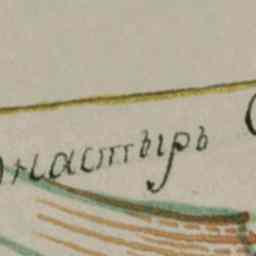 онастырь